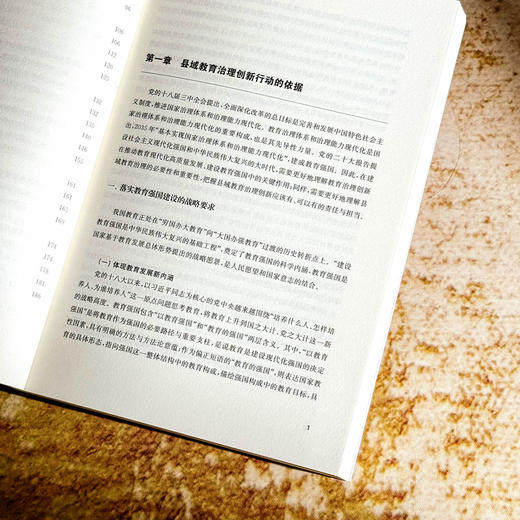 96
106
106
112
120
125
132
132
151
161
161
174
178
186
第一章 县域教育治理创新行动的依据
党的十八届三中全会提出,全面深化改革的总目标是完善和发展中国特色社会主
义制度,推进国家治理体系和治理能力现代化。教育治理体系和治理能力现代化是国
家治理体系和治理能力现代化的重要构成,也是其先导性力量。党的二十大报告提
出,2035年“基本实现国家治理体系和治理能力现代化”,建成教育强国。因此,在建
设社会主义现代化强国和中华民族伟大复兴的大时代,需要更好地理解教育治理创新
在推动教育现代化高质量发展、建设教育强国中的关键作用;同样,需要更好地理解县
域教育治理的必要性和重要性,把握县域教育治理创新应该有、可以有的责任与担当。
一、落实教育强国建设的战略要求
我国教育正处在“穷国办大教育”向“大国办强教育”过渡的历史转折点上。“建设
教育强国是中华民族伟大复兴的基础工程”,奠定了教育强国的科学内涵,教育强国是
国家基于教育发展总体形势提出的战略愿景,是人民愿望和国家意志的结合。
(一)体现教育发展新内涵
党的十八大以来,以习近平同志为核心的党中央越来越围绕“培养什么人、怎样培
养人、为谁培养人”这一原点问题思考教育,将教育上升到国之大计、党之大计这一新
的战略高度。教育强国包含“以教育强国”和“教育的强国”两层含义。其中,“以教育
强国”是将教育作为强国的必要路径与重要支柱,是说教育是建设现代化强国的决定
性因素,具有明确的方法与方法论意蕴;作为偏正短语的“教育的强国”,则表达国家教
育的具体形态,指向强国这一整体结构中的教育构成,描绘强国构成中的教育目标,具
1